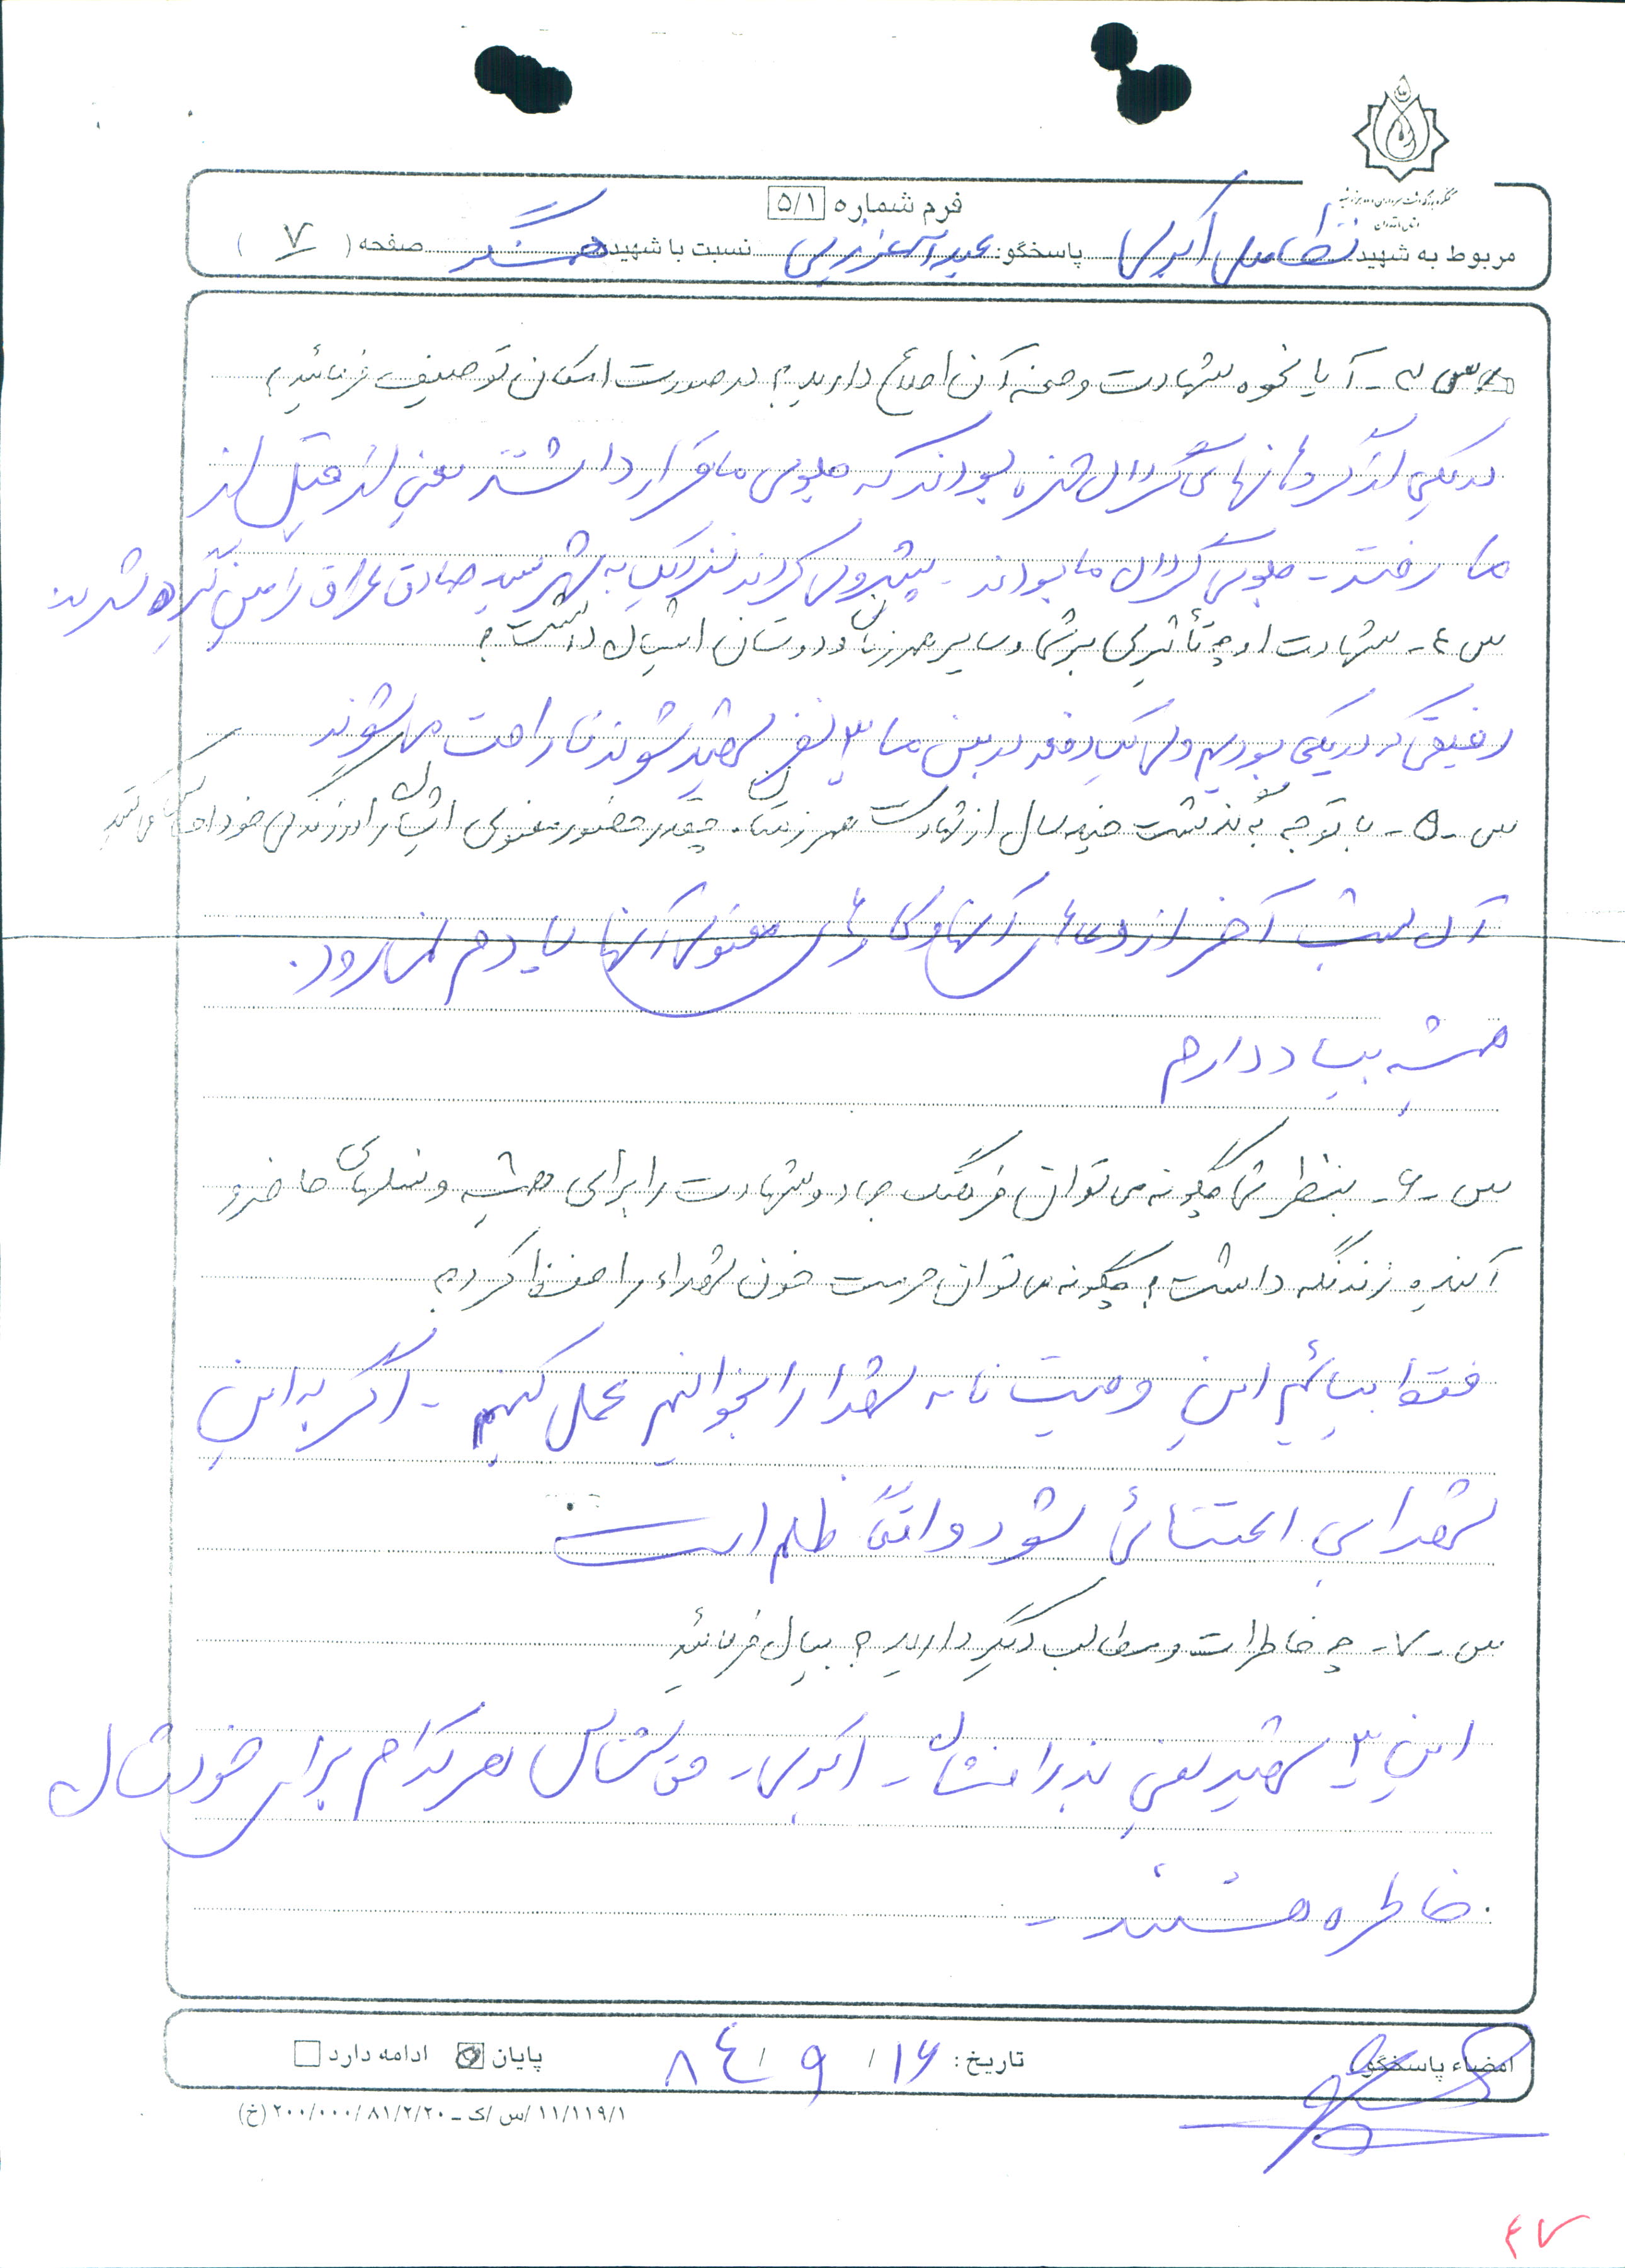 فرم شماره ۵/۱
مربوط به شهید نظامعلی اکبری پاسخگو: عبدالله عزیزی نسبت با شهید همسنگر صفحه ( ۷ )
س ۳- آیا نحوه شهادت و صحنه آن اطلاع دارید؟ در صورت امکان توصیف فرمائید؟
در یکی از گردانهای گردان حمزه بودند که جلوی ما قرار داشتند یعنی از قبل از
ما رفتند - جلوی گردان ما بودند - پیشروی کردند نزدیک به شهر سید صادق عراق زمین گیر شدند
س ۴- شهادت او چه تأثیری بر شما و سایر همرزمان و دوستان ایشان داشت؟
رفیقی که در یکی بودیم ولی یکدفعه در بین ما ۳ نفر شهید شوند ناراحت می شوند
س -۵- با توجه به گذشت چند سال از شهادت همرزمتان چقدر حضور معنوی ایشان را در زندگی خود احساس می کنید
آن شب آخر از دعاهای آنها و کارهای معنوی آنها یادم نمی رود.
همیشه بیاد دارم
س -۶- بنظر شما چگونه می توان فرهنگ جهاد و شهادت را برای همیشه و نسلهای حاضر و
آینده زنده نگه داشت؟ چگونه می توان حرمت خون شهداء را حفظ کرد؟
فقط بیائیم این وصیت نامه شهدا را بخوانیم عمل کنیم - اگر به این
شهدا بی اعتنائی شود واقعاً ظلم است
س -۷- چه خاطرات و مطالب دیگر دارید؟ بیان فرمائید
این ۳ شهید یعنی بذرافشان - اکبری - هر کدام برای خودشان
خاطره هستند -
امضاء پاسخگو: تاریخ: ۱۶ / ۹ / ۸۴ پایان ادامه دارد
۱۱/۱۱۹/۱/س/ک - ۲۰۰/۰۰۰/۸۱/۲/۲۰ (خ)
۴۷